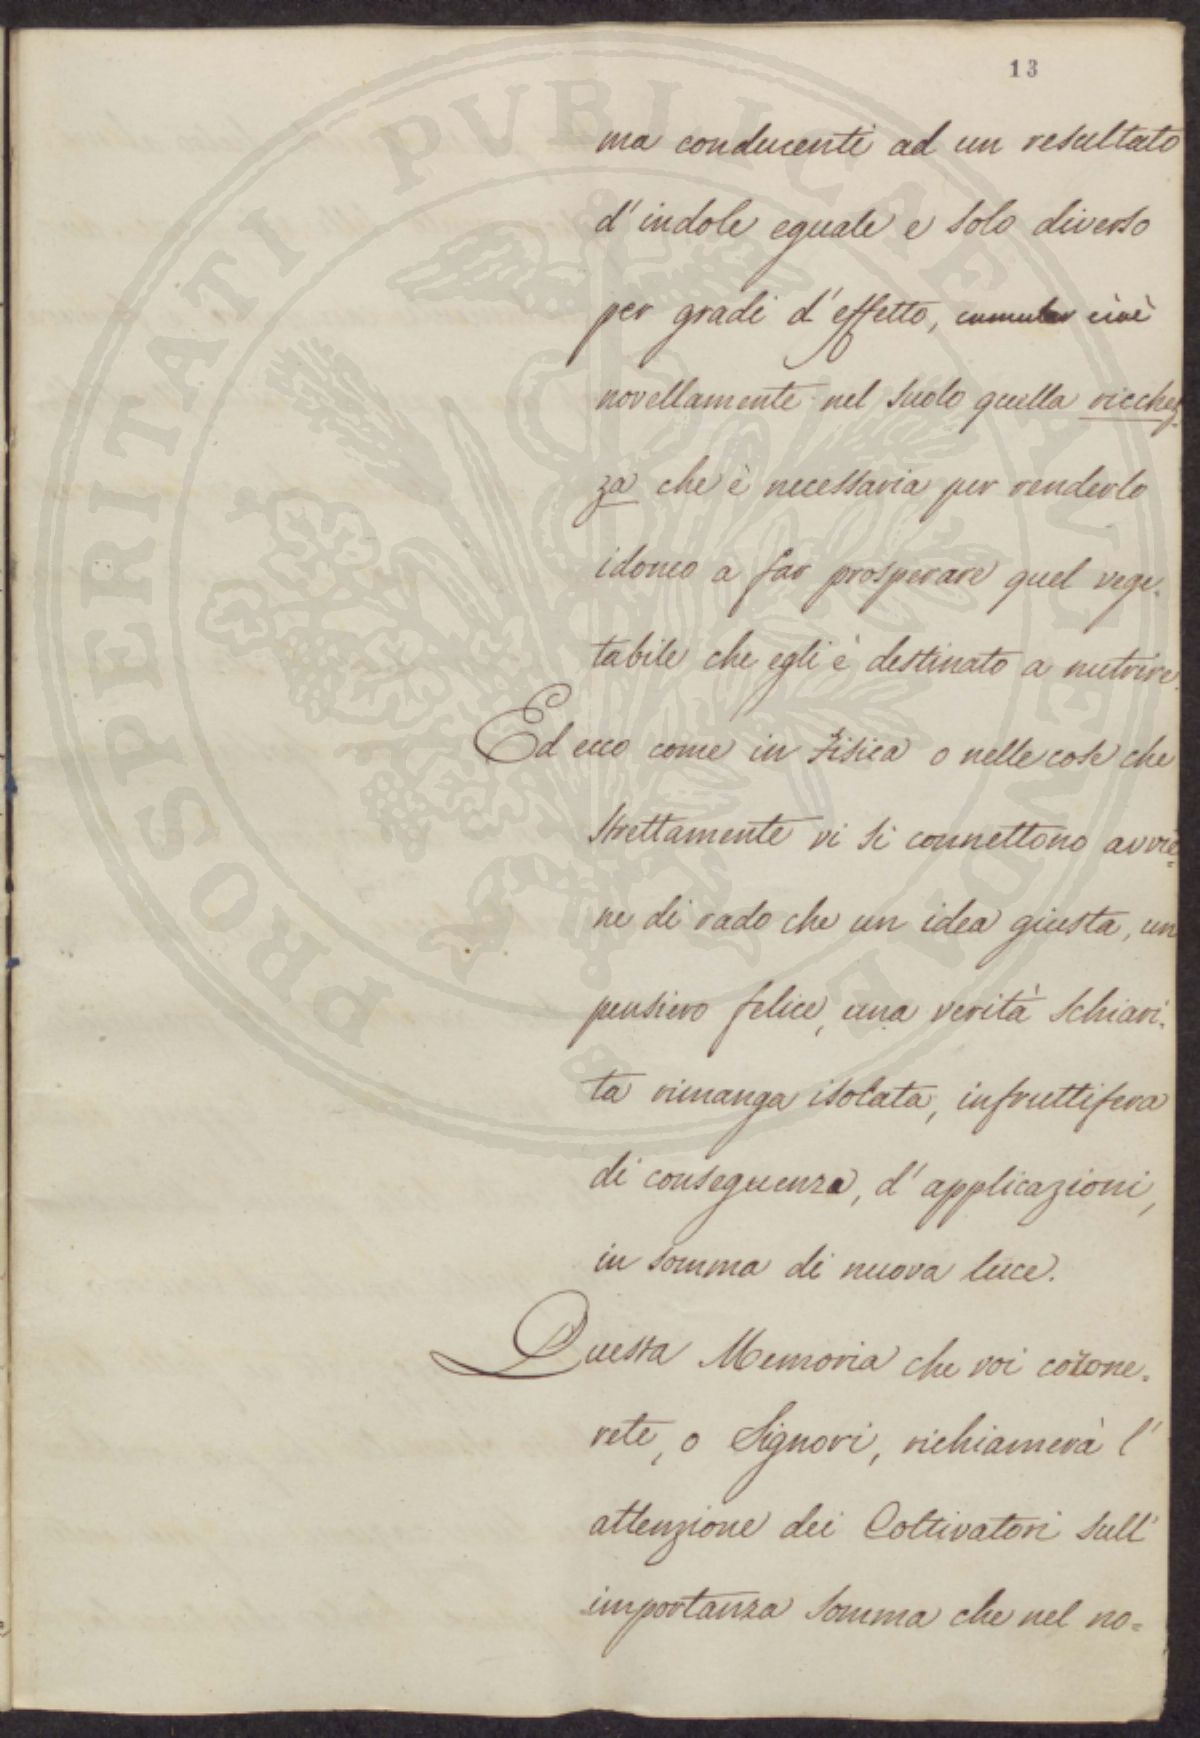 13
ma conducenti ad un resultato
d'indole eguale e solo diverso
per gradi d'effetto, cumular cioè
novellamente nel suolo quella ricchez-
za che è necessaria per renderlo
idoneo a far prosperare quel vege-
tabile che egli è destinato a nutrire.
Ed ecco come in Fisica o nelle cose che
strettamente vi si connettono avvie=
ne di rado che un idea giusta, un
pensiero felice, una verità schiari-
ta rimanga isolata, infruttifera
di conseguenza, d'applicazioni,
in somma di nuova luce.
Questa Memoria che voi corone-
rete, o Signori, richiamerà l'
attenzione dei Coltivatori sull'
importanza somma che nel no=
PROSPERITATI PVBLICAE AVGENDAE